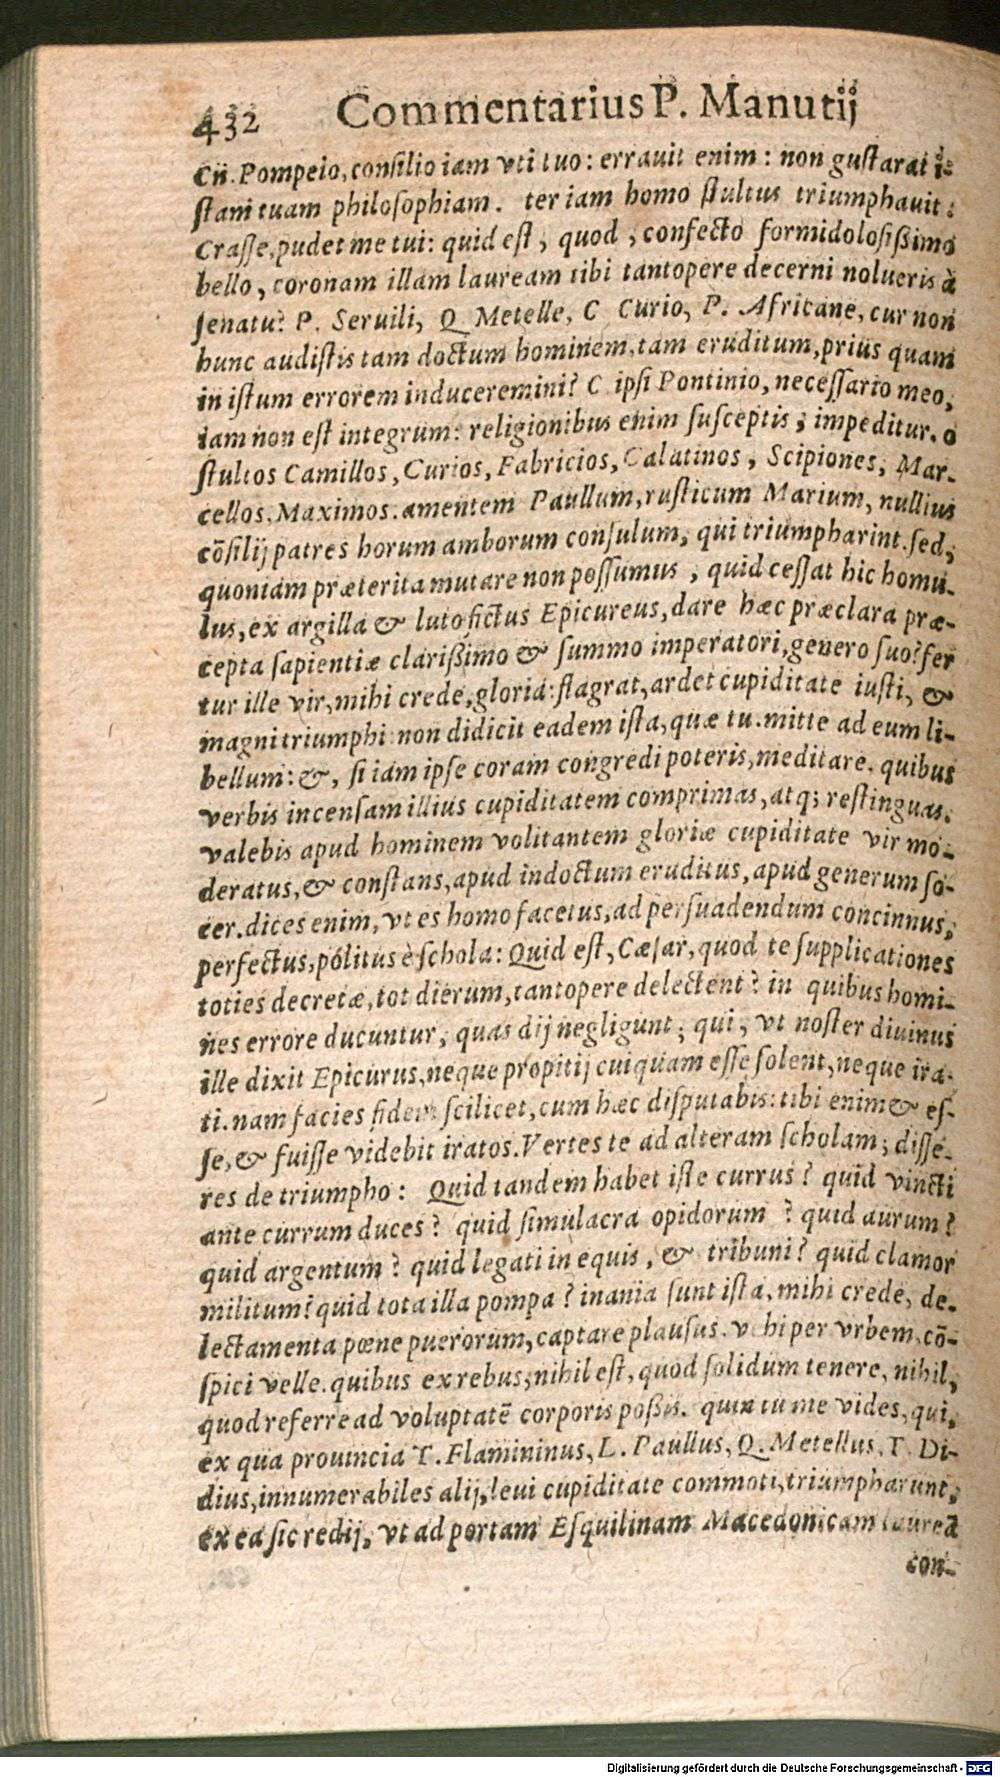 432 Commentarius P. Manutij
Cn. Pompeio, conſilio iam vti tuo: errauit enim: non guſtarat i-
ſtam tuam philoſophiam. ter iam homo ſtultus triumphauit:
Craſſe, pudet me tui: quid eſt, quod, confecto formidoloſiſsimo
bello, coronam illam lauream tibi tantopere decerni nolueris à
ſenatu? P. Seruili, Q Metelle, C Curio, P. Africane, cur non
hunc audiſtis tam doctum hominem, tam eruditum, prius quam
in iſtum errorem induceremini? C ipſi Pontinio, neceſſario meo,
iam non eſt integrum: religionibus enim ſuſceptis, impeditur. o
ſtultos Camillos, Curios, Fabricios, Calatinos, Scipiones, Mar-
cellos, Maximos. amentem Paullum, ruſticum Marium, nullius
cōſilij patres horum amborum conſulum, qui triumpharint. ſed,
quoniam præterita mutare non poſſumus, quid ceſſat hic homu-
lus, ex argilla & luto fictus Epicureus, dare hæc præclara præ-
cepta ſapientiæ clariſsimo & ſummo imperatori, genero ſuo? fer
tur ille vir, mihi crede, gloria: flagrat, ardet cupiditate iuſti, &
magni triumphi: non didicit eadem iſta, quæ tu. mitte ad eum li-
bellum: &, ſi iam ipſe coram congredi poteris, meditare. quibus
verbis incenſam illius cupiditatem comprimas, atq; reſtinguas.
valebis apud hominem volitantem gloriæ cupiditate vir mo-
deratus, & conſtans, apud indoctum eruditus, apud generum ſo-
cer. dices enim, vt es homo facetus, ad perſuadendum concinnus,
perfectus, politus è ſchola: Quid eſt, Cæſar, quod te ſupplicationes
toties decretæ, tot dierum, tantopere delectent? in quibus homi-
nes errore ducuntur, quas dij negligunt; qui, vt noſter diuinus
ille dixit Epicurus, neque propitij cuiquam eſſe ſolent, neque ira-
ti. nam facies fidem ſcilicet, cum hæc diſputabis: tibi enim & eſ-
ſe, & fuiſſe videbit iratos. Vertes te ad alteram ſcholam; diſſe-
res de triumpho: Quid tandem habet iſte currus? quid vincti
ante currum duces? quid ſimulacra opidorum? quid aurum?
quid argentum? quid legati in equis, & tribuni? quid clamor
militum? quid tota illa pompa? inania ſunt iſta, mihi crede, de-
lectamenta pœne puerorum, captare plauſus. vehi per vrbem. cō-
ſpici velle. quibus ex rebus, nihil eſt, quod ſolidum tenere, nihil,
quod referre ad voluptatē corporis poſsis. quin tu me vides, qui,
ex qua prouincia T. Flamininus, L. Paullus, Q. Metellus, T. Di-
dius, innumerabiles alij, leui cupiditate commoti, triumpharunt,
ex ea ſic redij, vt ad portam Eſquilinam Macedonicam laureā
con-
Digitalisierung gefördert durch die Deutsche Forschungsgemeinschaft - DFG